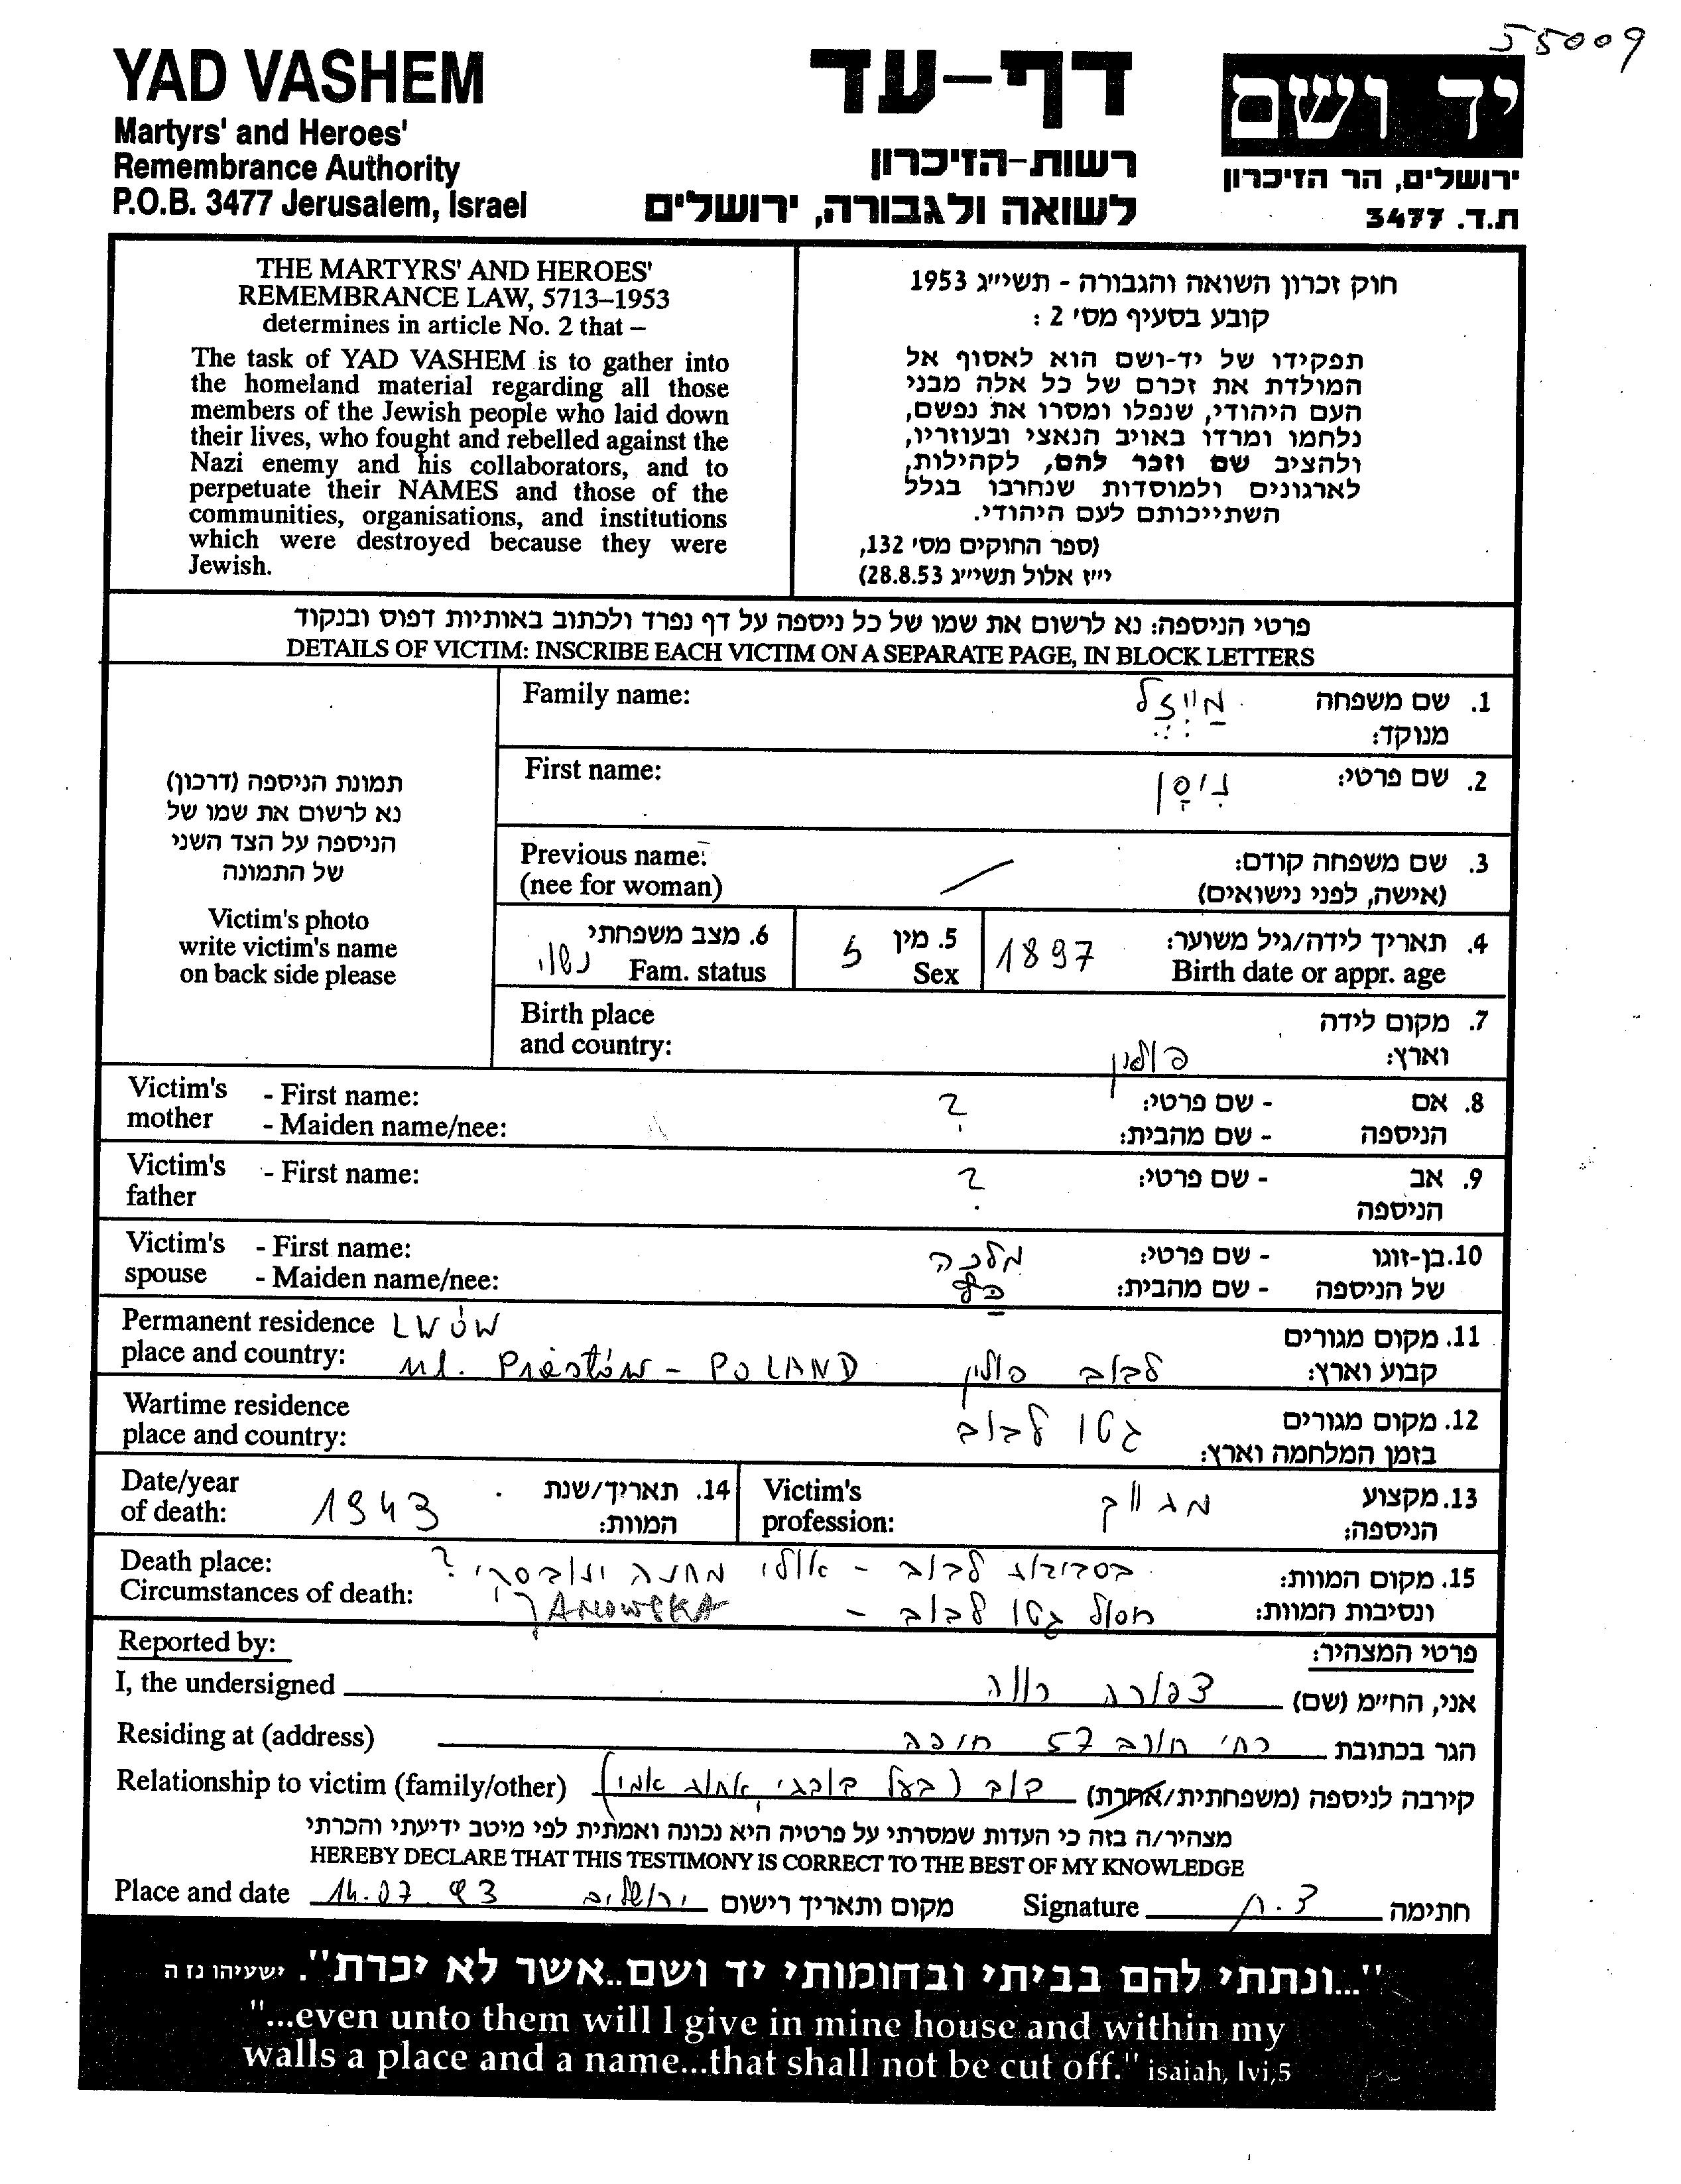 55009
YAD VASHEM
Martyrs' and Heroes'
Remembrance Authority
P.O.B. 3477 Jerusalem, Israel
דף-עד
רשות-הזיכרון
לשואה ולגבורה, ירושלים
יד ושם
ירושלים, הר הזיכרון
ת.ד. 3477
THE MARTYRS' AND HEROES'
REMEMBRANCE LAW, 5713–1953
determines in article No. 2 that –
The task of YAD VASHEM is to gather into
the homeland material regarding all those
members of the Jewish people who laid down
their lives, who fought and rebelled against the
Nazi enemy and his collaborators, and to
perpetuate their NAMES and those of the
communities, organisations, and institutions
which were destroyed because they were
Jewish.
חוק זכרון השואה והגבורה - תשי״ג 1953
קובע בסעיף מס׳ 2 :
תפקידו של יד-ושם הוא לאסוף אל
המולדת את זכרם של כל אלה מבני
העם היהודי, שנפלו ומסרו את נפשם,
נלחמו ומרדו באויב הנאצי ובעוזריו,
ולהציב שם וזכר להם, לקהילות,
לארגונים ולמוסדות שנחרבו בגלל
השתייכותם לעם היהודי.
(ספר החוקים מס׳ 132,
י״ז אלול תשי״ג 28.8.53)
פרטי הניספה: נא לרשום את שמו של כל ניספה על דף נפרד ולכתוב באותיות דפוס ובנקוד
DETAILS OF VICTIM: INSCRIBE EACH VICTIM ON A SEPARATE PAGE, IN BLOCK LETTERS
תמונת הניספה (דרכון)
נא לרשום את שמו של
הניספה על הצד השני
של התמונה
Victim's photo
write victim's name
on back side please
Family name: מייזל 1. שם משפחה
מנוקד:
First name: ניסן 2. שם פרטי:
Previous name: 3. שם משפחה קודם:
(nee for woman) (אישה, לפני נישואים)
4. תאריך לידה/גיל משוער: 1897 5. מין 6. מצב משפחתי
Birth date or appr. age Sex ז Fam. status נשוי
Birth place 7. מקום לידה
and country: פולין וארץ:
Victim's - First name: ? - שם פרטי: 8. אם
mother - Maiden name/nee: - שם מהבית: הניספה
Victim's - First name: ? - שם פרטי: 9. אב
father הניספה
Victim's - First name: מלכה - שם פרטי: 10. בן-זוגו
spouse - Maiden name/nee: כץ - שם מהבית: של הניספה
Permanent residence LWÓW 11. מקום מגורים
place and country: ul. - POLAND לבוב פולין קבוע וארץ:
Wartime residence 12. מקום מגורים
place and country: גטו לבוב בזמן המלחמה וארץ:
Date/year 14. תאריך/שנת Victim's 13. מקצוע
of death: 1943 המוות: profession: הניספה:
Death place: בסביבות לבוב - אולי מחנה ינובסקי ? 15. מקום המוות:
Circumstances of death: JANOWSKA חסול גטו לבוב - ונסיבות המוות:
Reported by: פרטי המצהיר:
I, the undersigned צפורה אני, החי״מ (שם)
Residing at (address) רח׳ חורב 57 חיפה הגר בכתובת
Relationship to victim (family/other) (בעל אחות אמי) קירבה לניספה (משפחתית/אחרת)
מצהיר/ה בזה כי העדות שמסרתי על פרטיה היא נכונה ואמתית לפי מיטב ידיעתי והכרתי
HEREBY DECLARE THAT THIS TESTIMONY IS CORRECT TO THE BEST OF MY KNOWLEDGE
Place and date 14.07 93 ירושלים מקום ותאריך רישום Signature חתימה
"...ונתתי להם בביתי ובחומותי יד ושם..אשר לא יכרת". ישעיהו נז ה
"...even unto them will I give in mine house and within my
walls a place and a name...that shall not be cut off." isaiah, lvi,5